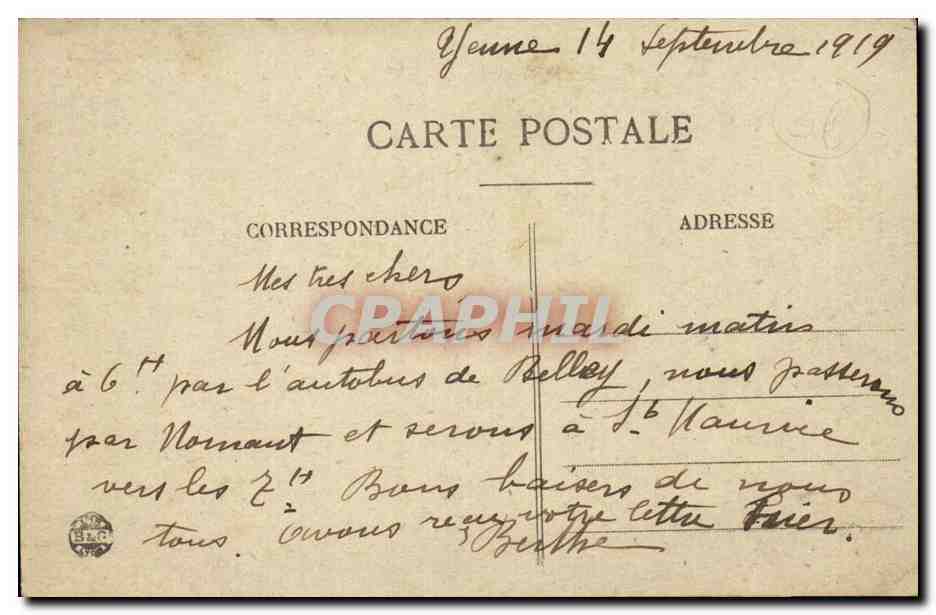 Yenne 14 Septembre 1919
CARTE POSTALE
CORRESPONDANCE
ADRESSE
Mes tres chers
Nous partons mardi matin
à 6 H par l'autobus de Belley, nous passerons
par Nomant et serons à St Maurice
vers les 7 H Bons baisers de nous
tous. avons reçu votre lettre hier.
Berthe
CPAPHIL
B & G